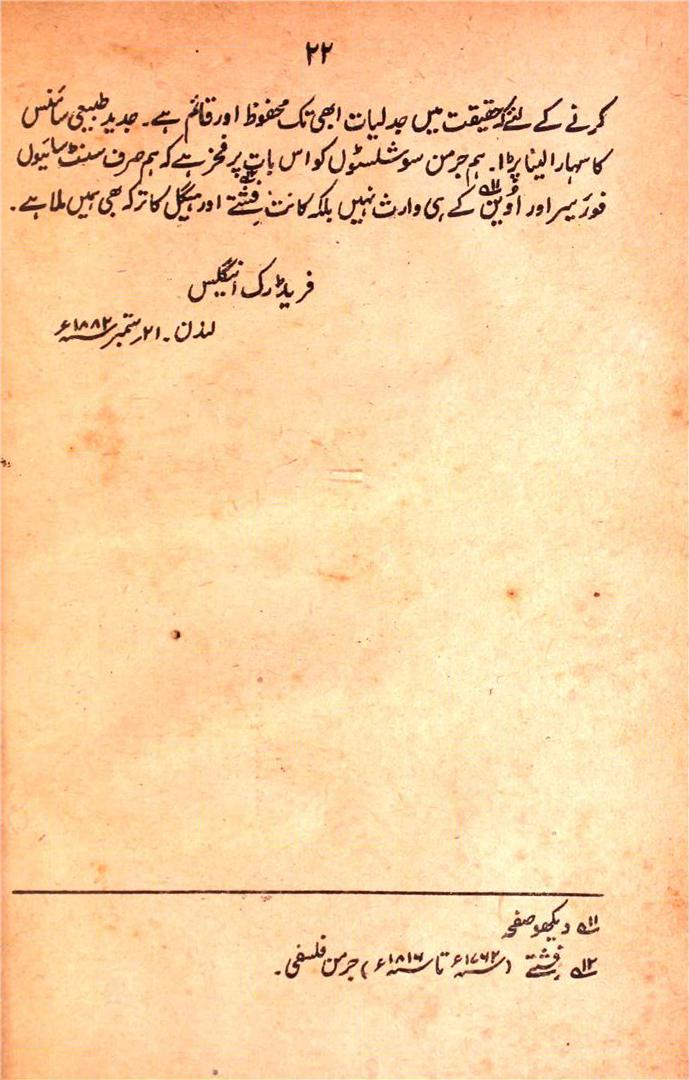 ۲۲
کرنے کے لئے کہ حقیقت میں جدلیات ابھی تک محفوظ اور قائم ہے۔ جدید طبیعی سائنس
کا سہارا لینا پڑا۔ ہم جرمن سوشلسٹوں کو اس بات پر فخر ہے کہ ہم صرف سنٹ سائیوں
فورئیر اور اُوین ۱۱ کے ہی وارث نہیں بلکہ کانٹ فِشٹے ۱۲ اور ہیگل کا ترکہ بھی ہمیں ملا ہے۔
فریڈرک انیگلس
لندن۔ ۲۱ ستمبر ۱۸۸۲ء
۱۱ دیکھو صفحہ
۱۲ فِشٹے (۱۷۶۲ء تا ۱۸۱۶ء) جرمن فلسفی۔